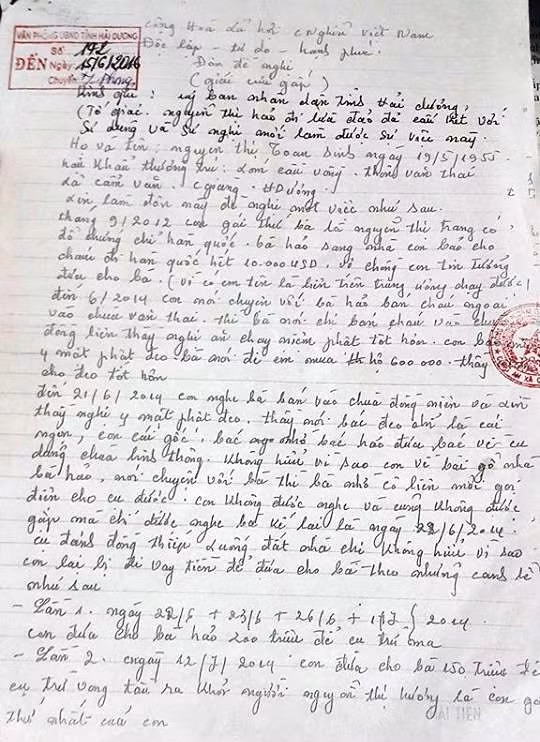 Cộng Hoà Xã hội cNghĩa Việt Nam
Độc lập - tự do - hạnh phúc
VĂN PHÒNG UBND TỈNH HẢI DƯƠNG
Số 192
ĐẾN Ngày 15/6/2016
Chuyển
Đơn đề nghị
(giải cứu gấp)
Kính gửi: uỷ ban nhân dân tỉnh Hải dương,
(Tố giác. nguyễn thị hảo đi lừa đảo đã cấu kết với
Sử dụng và sư nghi mới làm được sự việc này.
Họ và tên: nguyễn thị Toan sinh ngày 19/5/1955
hâu Khẩu thường trú: thôn vân thai
xã cẩm vân. cgiang. HDương.
làm đơn này đề nghị một việc như sau.
thang 9/2012 con gái thứ ba là nguyễn thị trang có
đã chứng chỉ han quốc. bà hảo sang nhà con bảo cho
cháu đi hàn quốc hết 10.000 USD. vợ chồng con tin tưởng
đưa cho bà. (vì có em tên là
đến 6/2014 con nói chuyện với bà hảo bán cháu ngoại
vào chùa văn thai. thì bà nói chị bán cháu vào chùa
đông liên thầy nghi ăn chay niệm phật tốt hơn. con bảo
y mặt phật đeo. bà nói để em mua hộ 600.000. thầy
cho đeo tốt hơn
đến 21/6/2014 con nghe bà bán vào chùa đông
thầy nghi y mặt phật đeo. thầy nói bác đeo chỉ là cái
ngọn, còn cái gốc. bác bác hảo đưa bác về cụ
dang chùa linh thông. Không hiểu vì sao con về bài gồ nhà
bà hảo, nói chuyện với bà thì bà nhỏ cô liên mới gọi
điện cho cụ được: con không được nghe và cũng không được
gặp mà chỉ được nghe bà kể lại là ngày 22/6/2014.
cụ đánh động đất nhà chị không hiểu vì sao
con lại bị đi vay tiền để đưa cho bà theo những canh lễ
như sau
- Lần 1. ngày 22/6 + 23/6 + 26/6 + 1/7 } 2014.
con đưa cho bà hảo 200 triệu để cụ trừ ma
- Lần 2. ngày 12/7/2014 con đưa cho bà 150 triệu để
cụ trừ vong tàu ra khỏi người nguyễn thị hương là con gái
thứ nhất của con
HẢI TIẾN